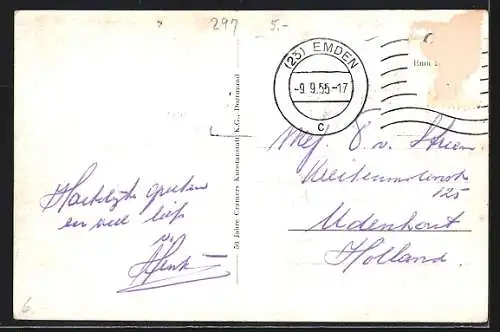 297 5.-
(23) EMDEN
-9.9.55-17
c
50 Jahre Cramers Kunstanstalt K.G., Dortmund
Mej. v.
125
Udenhout
Holland.
Hartelijke groeten
en veel liefs
v.
Henk
6.